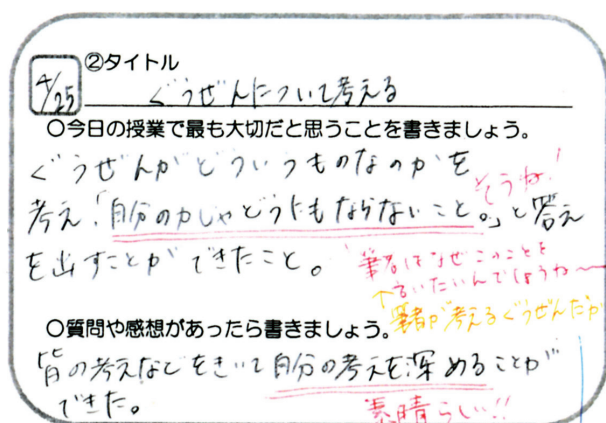 ②タイトル
4/25 ぐうぜんについて考える
○今日の授業で最も大切だと思うことを書きましょう。
ぐうぜんがどういうものなのかを
考え「自分の力じゃどうにもならないこと。」と答え
そうね!
を出すことができたこと。
筆者はなぜこのことを
言いたいんでしょうね〜
↑筆者が考えるぐうぜんだが
○質問や感想があったら書きましょう。
皆の考えなどをきいて自分の考えを深めることが
できた。
素晴らしい!!